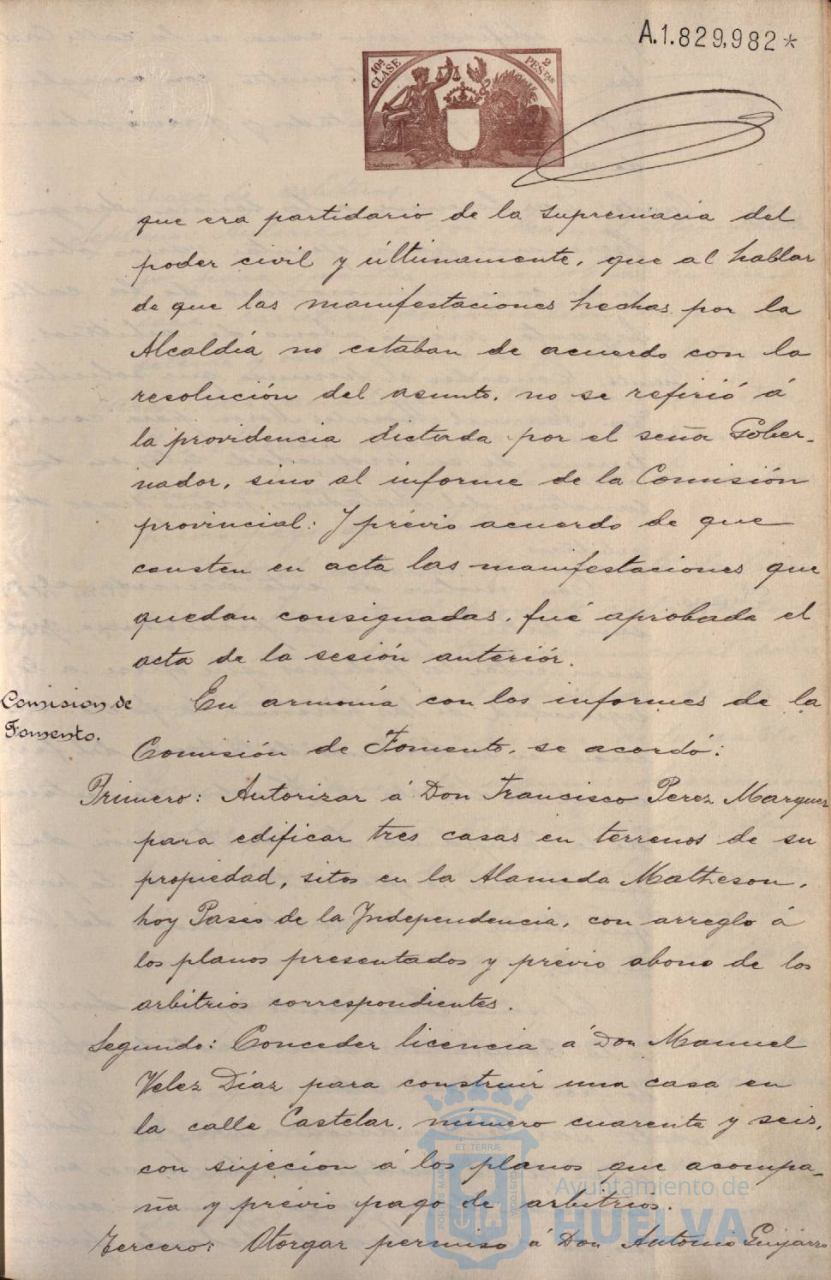 A.1.829,982*
10ª CLASE
2 PESTAS
que era partidario de la supremacia del
poder civil y últimamente, que al hablar
de que las manifestaciones hechas por la
Alcaldía no estaban de acuerdo con la
resolución del asunto, no se refirió á
la providencia dictada por el señor Gober-
nador, sino al informe de la Comisión
provincial: Y prévio acuerdo de que
consten en acta las manifestaciones que
quedan consignadas, fué aprobada el
acta de la sesión anteriór.
Comision de
Fomento.
En armonía con los informes de la
Comisión de Fomento, se acordó:
Primero: Autorizar á Don Francisco Perez Marquez
para edificar tres casas en terrenos de su
propiedad, sitos en la Alameda Matheson,
hoy Paseo de la Yndependencia, con arreglo á
los planos presentados y prévio abono de los
arbitrios correspondientes.
Segundo: Conceder licencia á Don Manuel
Velez Díaz para construir una casa en
la calle Castelar, número cuarenta y seis,
con sujeción á los planos que acompa-
ña y prévio pago de arbitrios.
Tercero: Otorgar permiso á Don Antonio Guijarro
ET TERRÆ
Ayuntamiento de
HUELVA